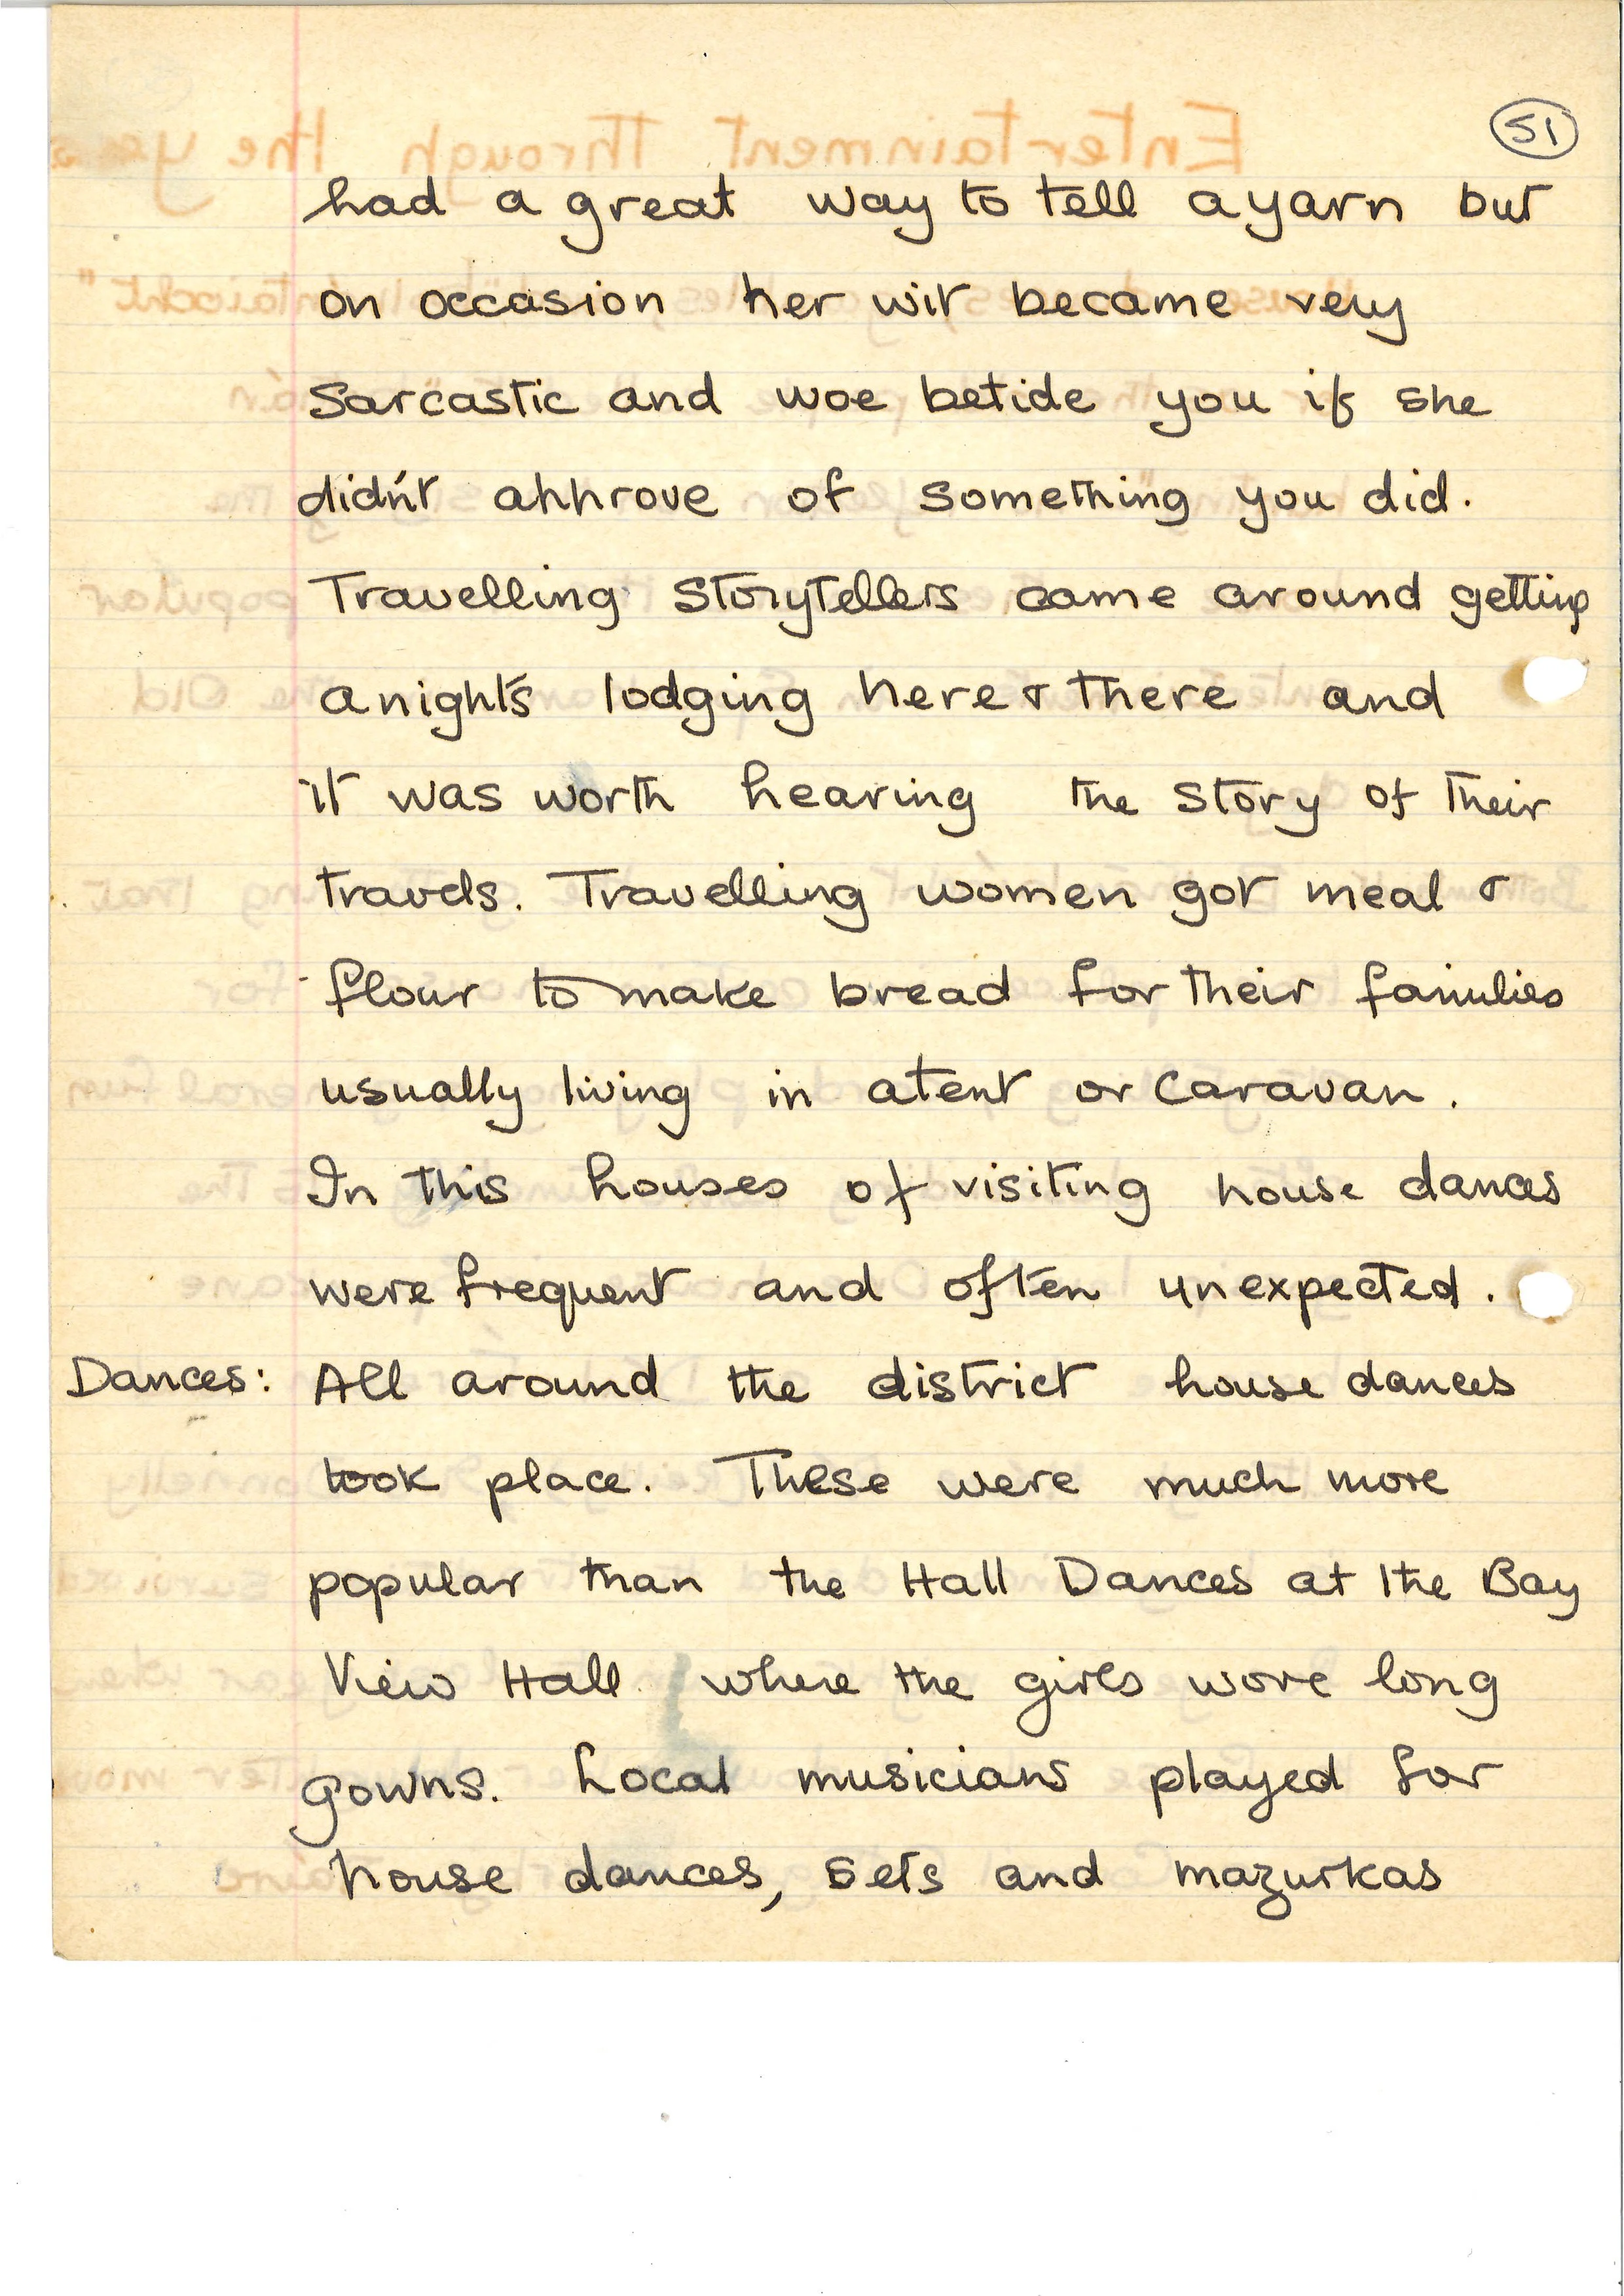 51
had a great way to tell a yarn but
on occasion her wit became very
Sarcastic and woe betide you if she
didn't approve of something you did.
Travelling Storytellers came around getting
a night's lodging here & there and
it was worth hearing the story of their
travels. Travelling women got meal &
flour to make bread for their families
usually living in a tent or caravan.
In this houses of visiting house dances
were frequent and often unexpected.
Dances: All around the district house dances
took place. These were much more
popular than the Hall Dances at the Bay
View Hall where the girls wore long
gowns. Local musicians played for
house dances, sets and mazurkas